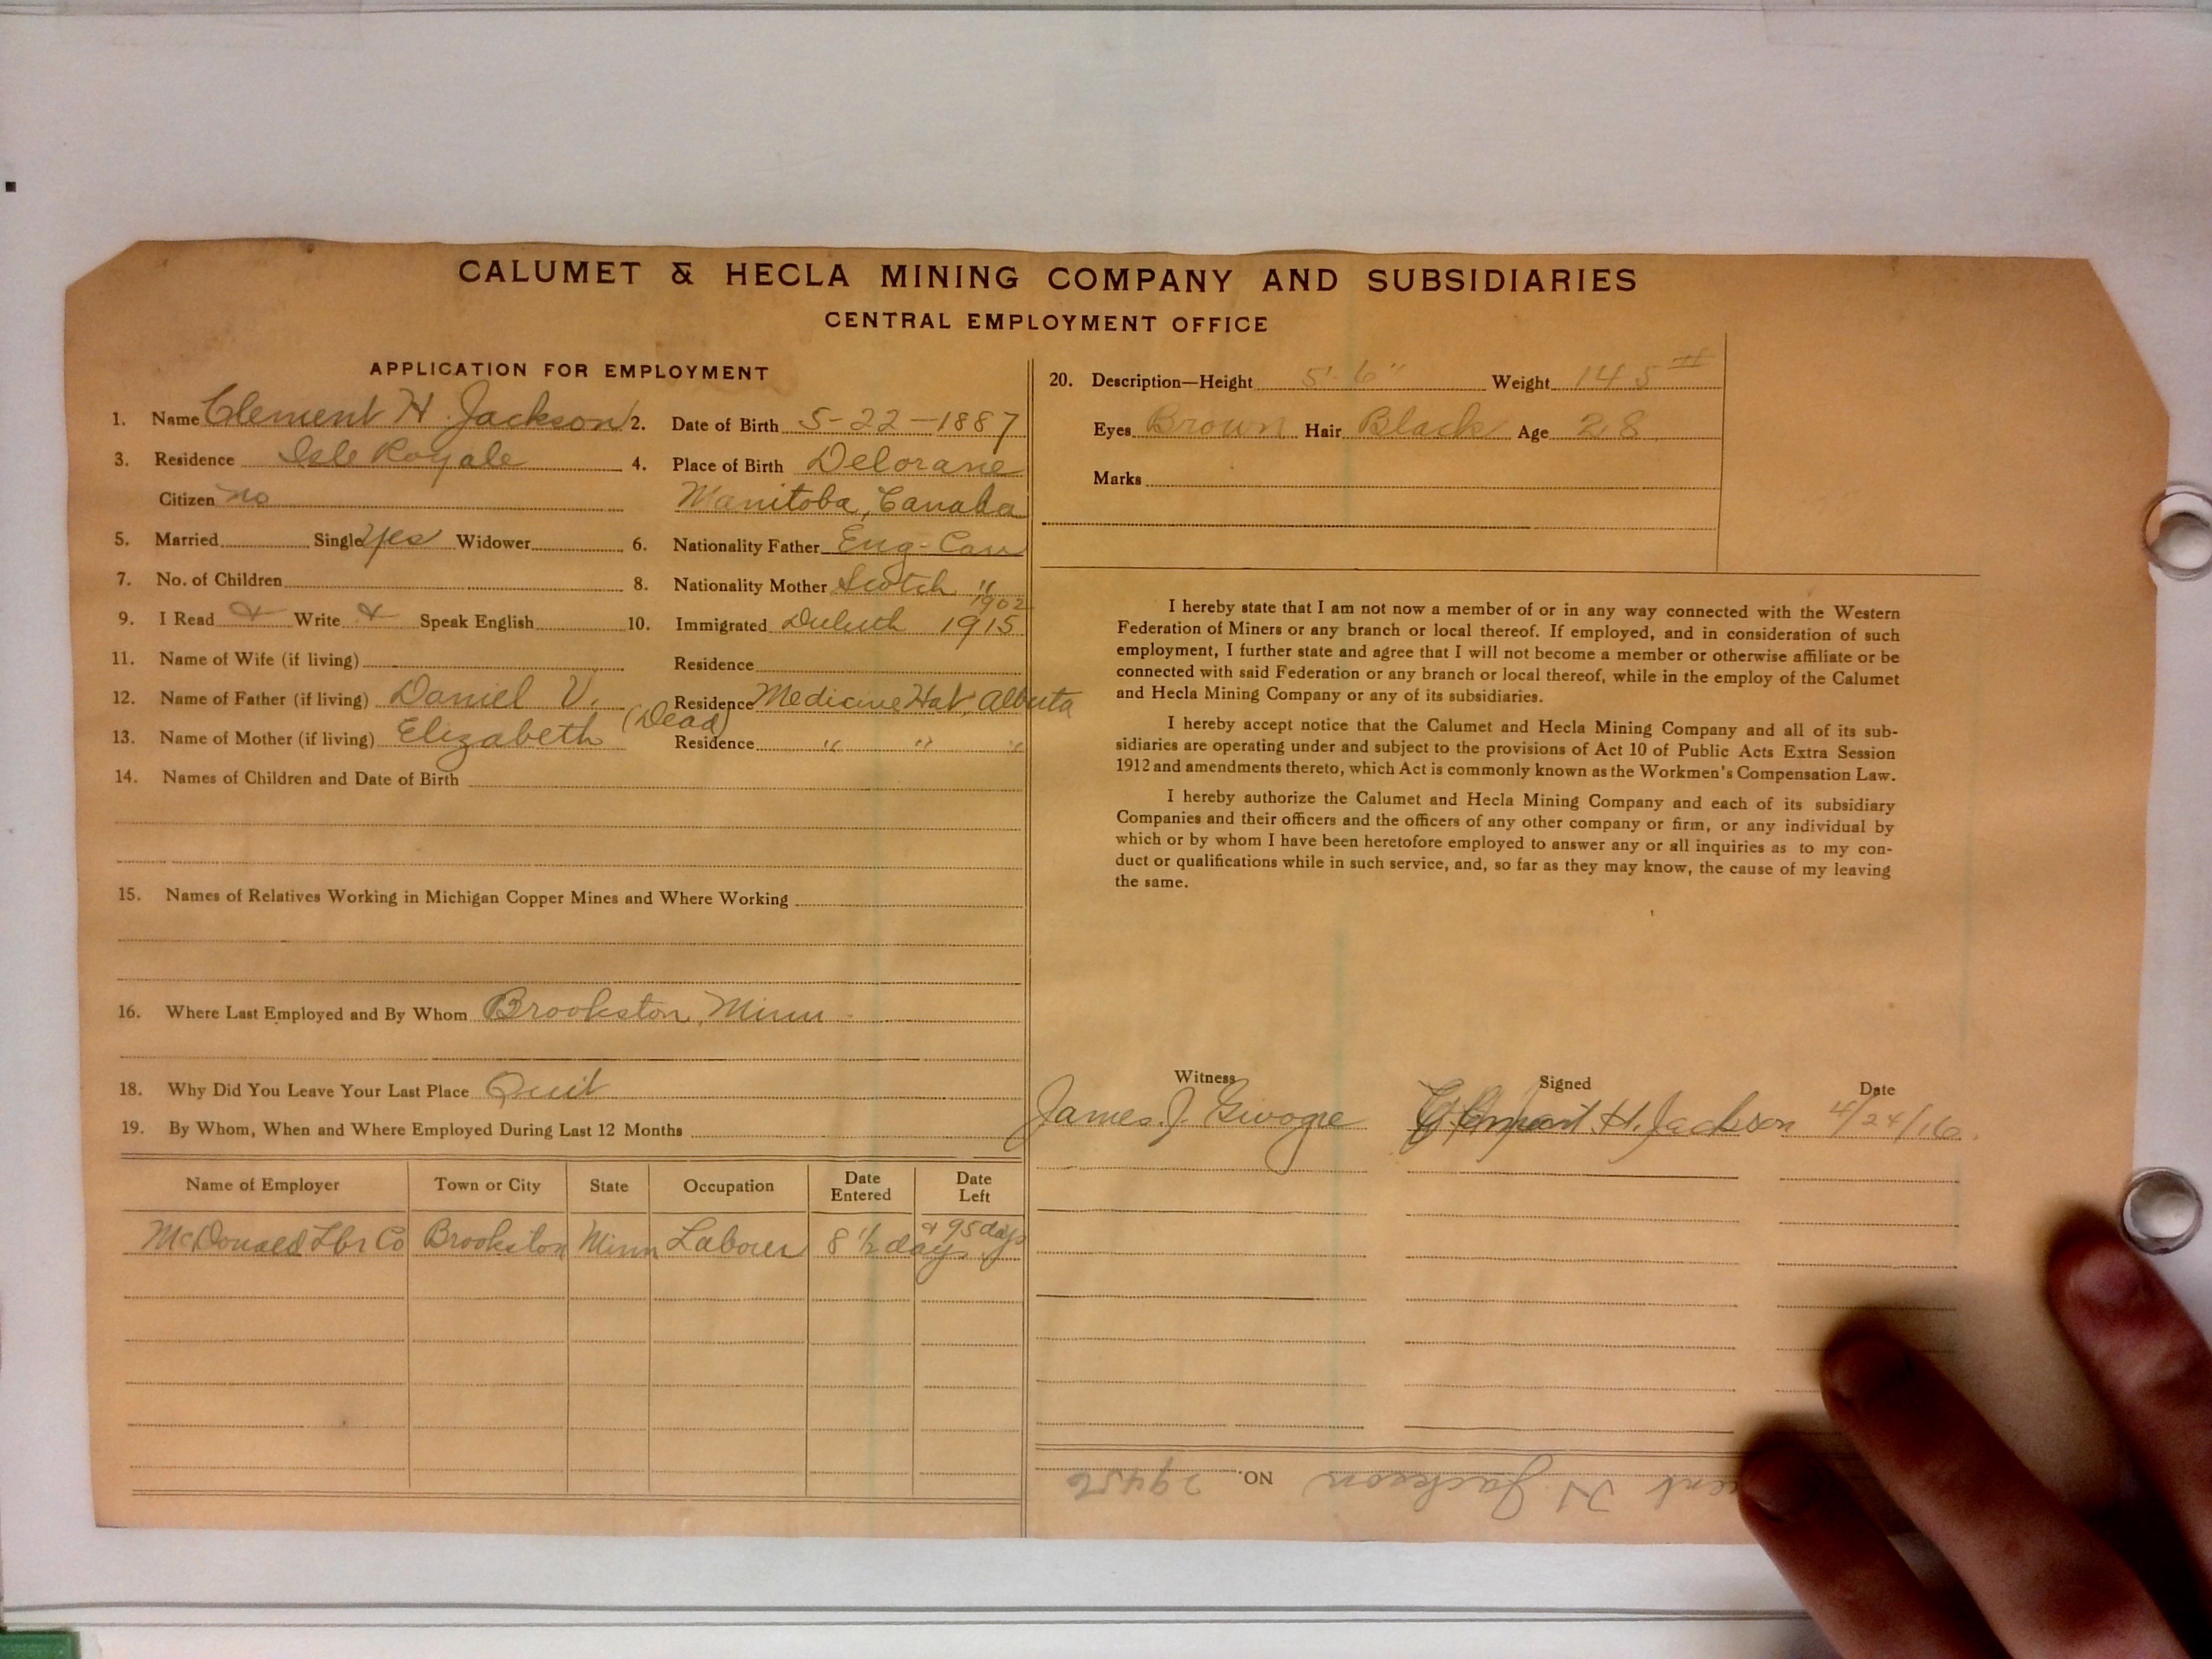 CALUMET & HECLA MINING COMPANY AND SUBSIDIARIES
CENTRAL EMPLOYMENT OFFICE
APPLICATION FOR EMPLOYMENT
1. Name Clement H. Jackson 2. Date of Birth 5-22-1887
3. Residence Isle Royale 4. Place of Birth Delorane
Citizen no Manitoba, Canada
5. Married Single yes Widower 6. Nationality Father Eng-Can
7. No. of Children 8. Nationality Mother Scotch "
1902
9. I Read & Write & Speak English 10. Immigrated Duluth 1915
11. Name of Wife (if living) Residence
12. Name of Father (if living) Daniel V. Residence Medicine Hat, Alberta
13. Name of Mother (if living) Elizabeth (Dead) Residence " " "
14. Names of Children and Date of Birth
15. Names of Relatives Working in Michigan Copper Mines and Where Working
16. Where Last Employed and By Whom Brookston, Minn
18. Why Did You Leave Your Last Place Quit
19. By Whom, When and Where Employed During Last 12 Months
Name of Employer Town or City State Occupation Date Entered Date Left
McDonald Lbr Co Brookston Minn Labour 8 1/2 days & 95 days
20. Description—Height 5'-6" Weight 145#
Eyes Brown Hair Black Age 28
Marks
I hereby state that I am not now a member of or in any way connected with the Western
Federation of Miners or any branch or local thereof. If employed, and in consideration of such
employment, I further state and agree that I will not become a member or otherwise affiliate or be
connected with said Federation or any branch or local thereof, while in the employ of the Calumet
and Hecla Mining Company or any of its subsidiaries.
I hereby accept notice that the Calumet and Hecla Mining Company and all of its sub-
sidiaries are operating under and subject to the provisions of Act 10 of Public Acts Extra Session
1912 and amendments thereto, which Act is commonly known as the Workmen's Compensation Law.
I hereby authorize the Calumet and Hecla Mining Company and each of its subsidiary
Companies and their officers and the officers of any other company or firm, or any individual by
which or by whom I have been heretofore employed to answer any or all inquiries as to my con-
duct or qualifications while in such service, and, so far as they may know, the cause of my leaving
the same.
Witness Signed Date
James J. H. Jackson 4/24/16.
H Jackson NO. 29456